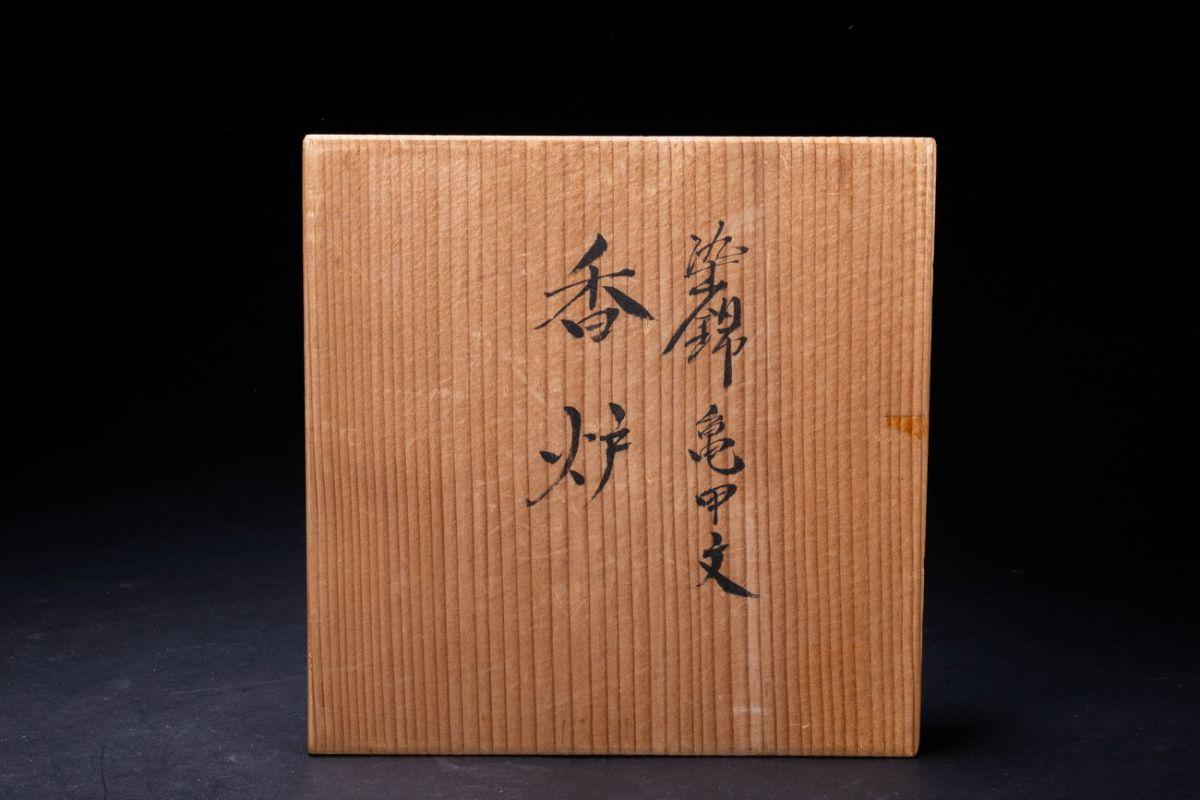 染錦 亀甲文
香炉